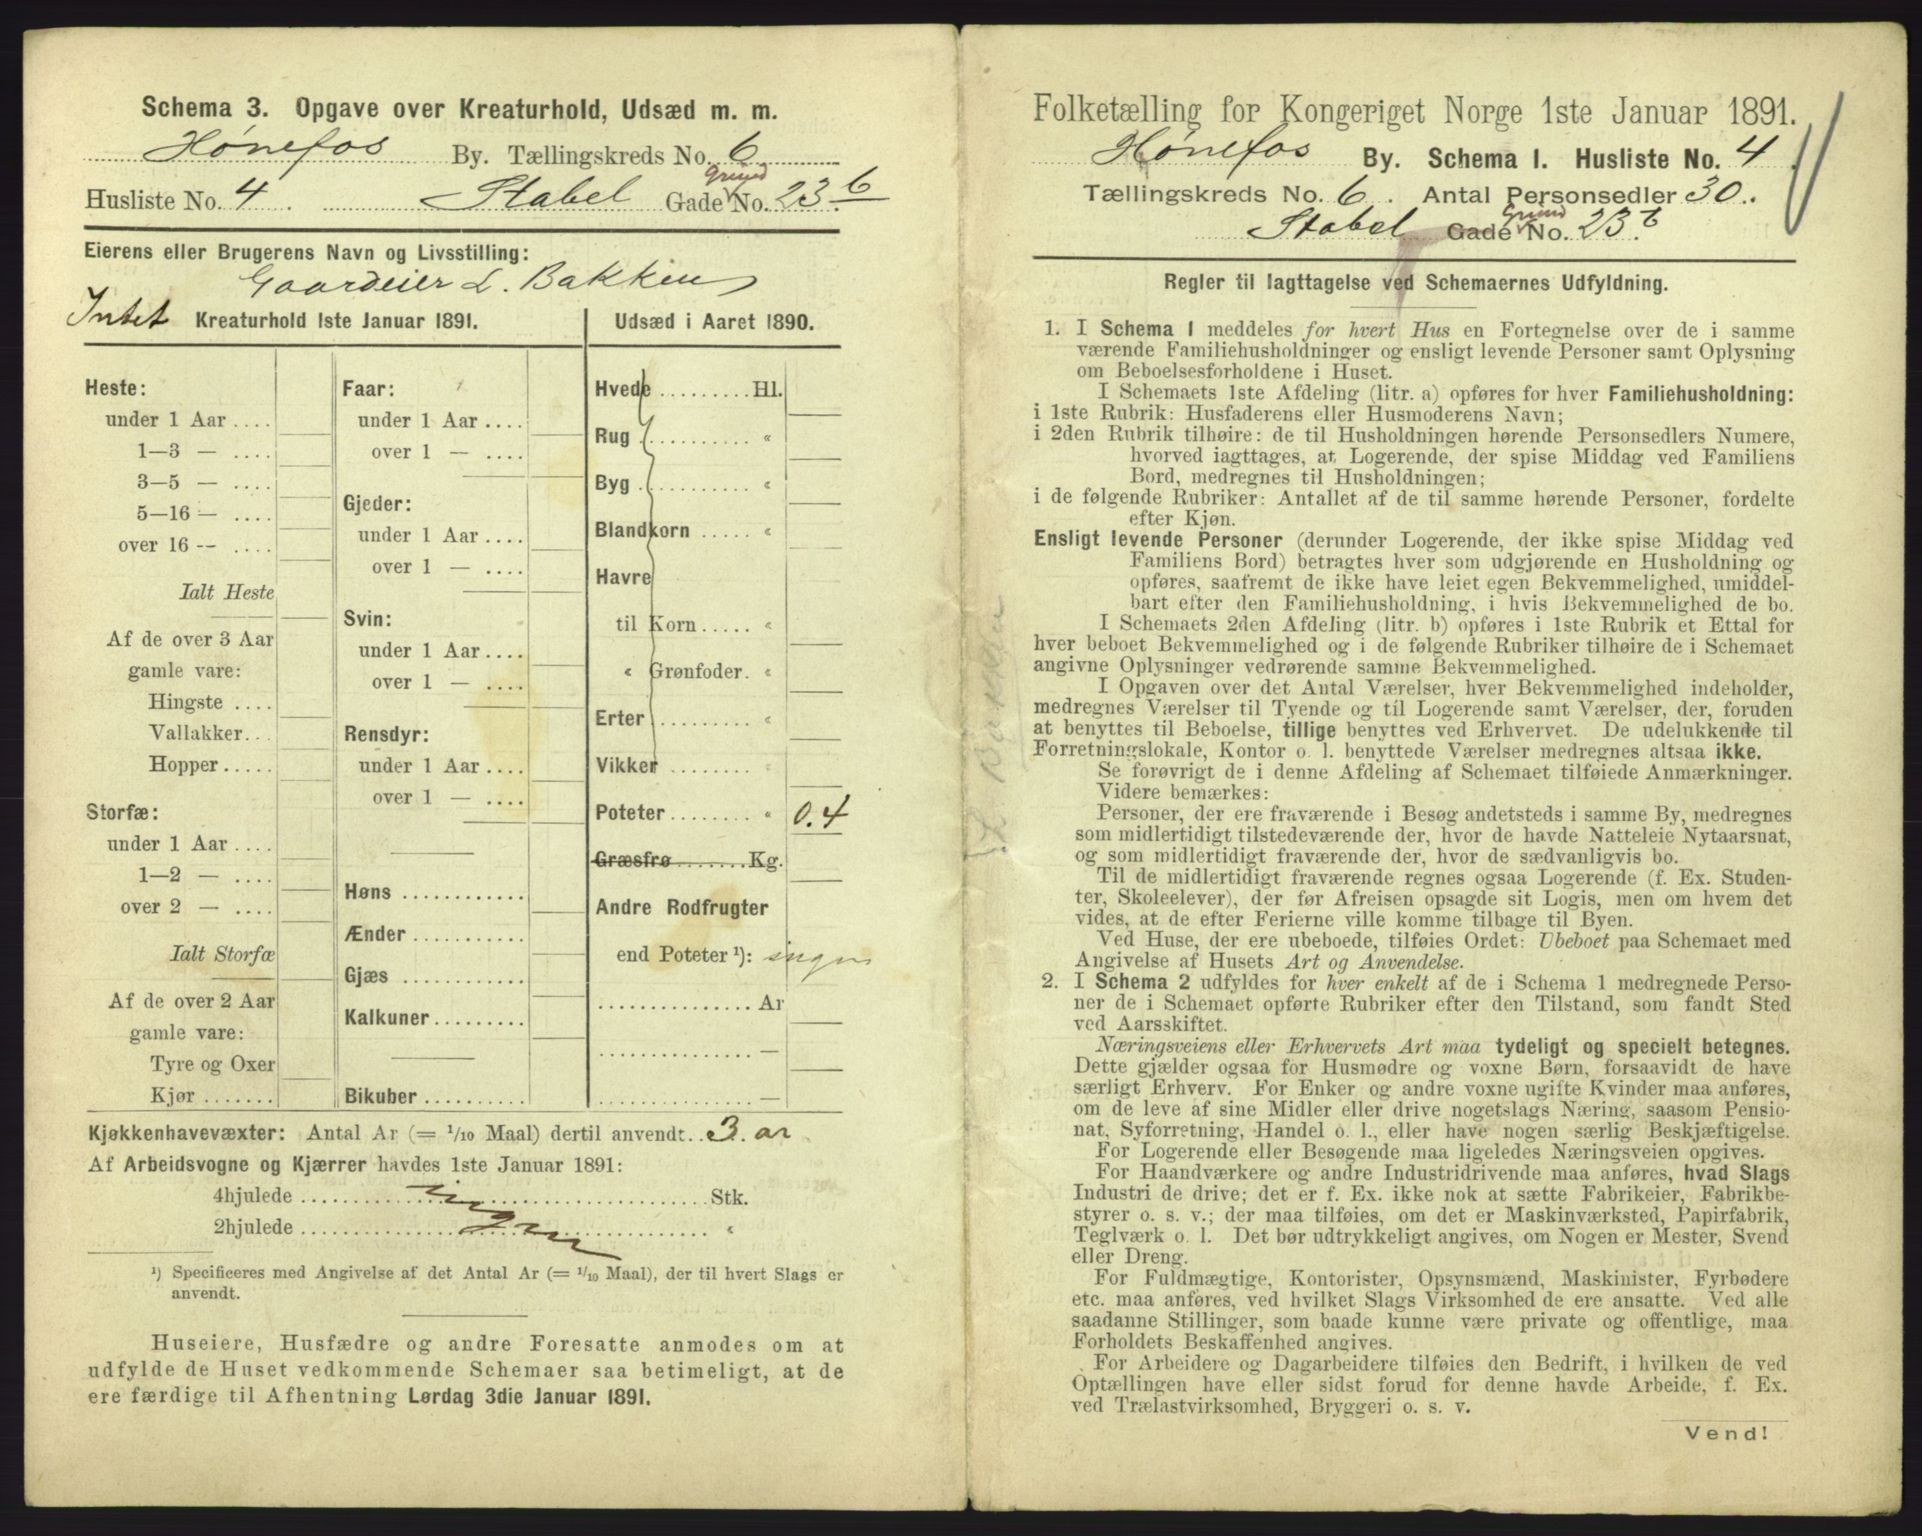 Schema 3. Opgave over Kreaturhold, Udsæd m. m.
Hønefos By. Tællingskreds No. 6
Husliste No. 4 Stabel Gade Grund No. 23 b
Eierens eller Brugerens Navn og Livsstilling:
Gaardeier L. Bakken
Intet Kreaturhold 1ste Januar 1891.
Heste:
under 1 Aar ....
1—3 — ....
3—5 — ....
5—16 — ....
over 16 — ....
Ialt Heste
Af de over 3 Aar
gamle vare:
Hingste ....
Vallakker...
Hopper.....
Storfæ:
under 1 Aar ....
1—2 — ....
over 2 — ....
Ialt Storfæ
Af de over 2 Aar
gamle vare:
Tyre og Oxer
Kjør .......
Faar:
under 1 Aar ....
over 1 — ....
Gjeder:
under 1 Aar ....
over 1 — ....
Svin:
under 1 Aar ....
over 1 — ....
Rensdyr:
under 1 Aar ....
over 1 — ....
Høns ............
Ænder ...........
Gjæs ............
Kalkuner.........
Bikuber ..........
Udsæd i Aaret 1890.
Hvede ......... Hl.
Rug ........... "
Byg ........... "
Blandkorn ..... "
Havre
til Korn ..... "
" Grønfoder. "
Erter ........ "
Vikker ........ "
Poteter........ " 0.4
Græsfrø....... Kg.
Andre Rodfrugter
end Poteter ¹): ingen
............... Ar
............... —
............... —
Kjøkkenhavevæxter: Antal Ar (= 1/10 Maal) dertil anvendt.. 3. ar
Af Arbeidsvogne og Kjærrer havdes 1ste Januar 1891:
4hjulede ........ Stk.
2hjulede ........ "
ingen
¹) Specificeres med Angivelse af det Antal Ar (= 1/10 Maal), der til hvert Slags er
anvendt.
Huseiere, Husfædre og andre Foresatte anmodes om at
udfylde de Huset vedkommende Schemaer saa betimeligt, at de
ere færdige til Afhentning Lørdag 3die Januar 1891.
Folketælling for Kongeriget Norge 1ste Januar 1891.
Hønefos By. Schema I. Husliste No. 4
Tællingskreds No. 6. Antal Personsedler 30.
Stabel Gade Grund No. 23 b
Regler til Iagttagelse ved Schemaernes Udfyldning.
1. I Schema I meddeles for hvert Hus en Fortegnelse over de i samme
værende Familiehusholdninger og ensligt levende Personer samt Oplysning
om Beboelsesforholdene i Huset.
I Schemaets 1ste Afdeling (litr. a) opføres for hver Familiehusholdning:
i 1ste Rubrik: Husfaderens eller Husmoderens Navn;
i 2den Rubrik tilhøire: de til Husholdningen hørende Personsedlers Numere,
hvorved iagttages, at Logerende, der spise Middag ved Familiens
Bord, medregnes til Husholdningen;
i de følgende Rubriker: Antallet af de til samme hørende Personer, fordelte
efter Kjøn.
Ensligt levende Personer (derunder Logerende, der ikke spise Middag ved
Familiens Bord) betragtes hver som udgjørende en Husholdning og
opføres, saafremt de ikke have leiet egen Bekvemmelighed, umiddel-
bart efter den Familiehusholdning, i hvis Bekvemmelighed de bo.
I Schemaets 2den Afdeling (litr. b) opføres i 1ste Rubrik et Ettal for
hver beboet Bekvemmelighed og i de følgende Rubriker tilhøire de i Schemaet
angivne Oplysninger vedrørende samme Bekvemmelighed.
I Opgaven over det Antal Værelser, hver Bekvemmelighed indeholder,
medregnes Værelser til Tyende og til Logerende samt Værelser, der, foruden
at benyttes til Beboelse, tillige benyttes ved Erhvervet. De udelukkende til
Forretningslokale, Kontor o. l. benyttede Værelser medregnes altsaa ikke.
Se forøvrigt de i denne Afdeling af Schemaet tilføiede Anmærkninger.
Videre bemærkes:
Personer, der ere fraværende i Besøg andetsteds i samme By, medregnes
som midlertidigt tilstedeværende der, hvor de havde Natteleie Nytaarsnat,
og som midlertidigt fraværende der, hvor de sædvanligvis bo.
Til de midlertidigt fraværende regnes ogsaa Logerende (f. Ex. Studen-
ter, Skoleelever), der før Afreisen opsagde sit Logis, men om hvem det
vides, at de efter Ferierne ville komme tilbage til Byen.
Ved Huse, der ere ubeboede, tilføies Ordet: Ubeboet paa Schemaet med
Angivelse af Husets Art og Anvendelse.
2. I Schema 2 udfyldes for hver enkelt af de i Schema 1 medregnede Perso-
ner de i Schemaet opførte Rubriker efter den Tilstand, som fandt Sted
ved Aarsskiftet.
Næringsveiens eller Erhvervets Art maa tydeligt og specielt betegnes.
Dette gjælder ogsaa for Husmødre og voxne Børn, forsaavidt de have
særligt Erhverv. For Enker og andre voxne ugifte Kvinder maa anføres,
om de leve af sine Midler eller drive nogetslags Næring, saasom Pensio-
nat, Syforretning, Handel o. l., eller have nogen særlig Beskjæftigelse.
For Logerende eller Besøgende maa ligeledes Næringsveien opgives.
For Haandværkere og andre Industridrivende maa anføres, hvad Slags
Industri de drive; det er f. Ex. ikke nok at sætte Fabrikeier, Fabrikbe-
styrer o. s. v.; der maa tilføies, om det er Maskinværksted, Papirfabrik,
Teglværk o. l. Det bør udtrykkeligt angives, om Nogen er Mester, Svend
eller Dreng.
For Fuldmægtige, Kontorister, Opsynsmænd, Maskinister, Fyrbødere
etc. maa anføres, ved hvilket Slags Virksomhed de ere ansatte. Ved alle
saadanne Stillinger, som baade kunne være private og offentlige, maa
Forholdets Beskaffenhed angives.
For Arbeidere og Dagarbeidere tilføies den Bedrift, i hvilken de ved
Optællingen have eller sidst forud for denne havde Arbeide, f. Ex.
ved Trælastvirksomhed, Bryggeri o. s. v.
Vend!
L. Bakken